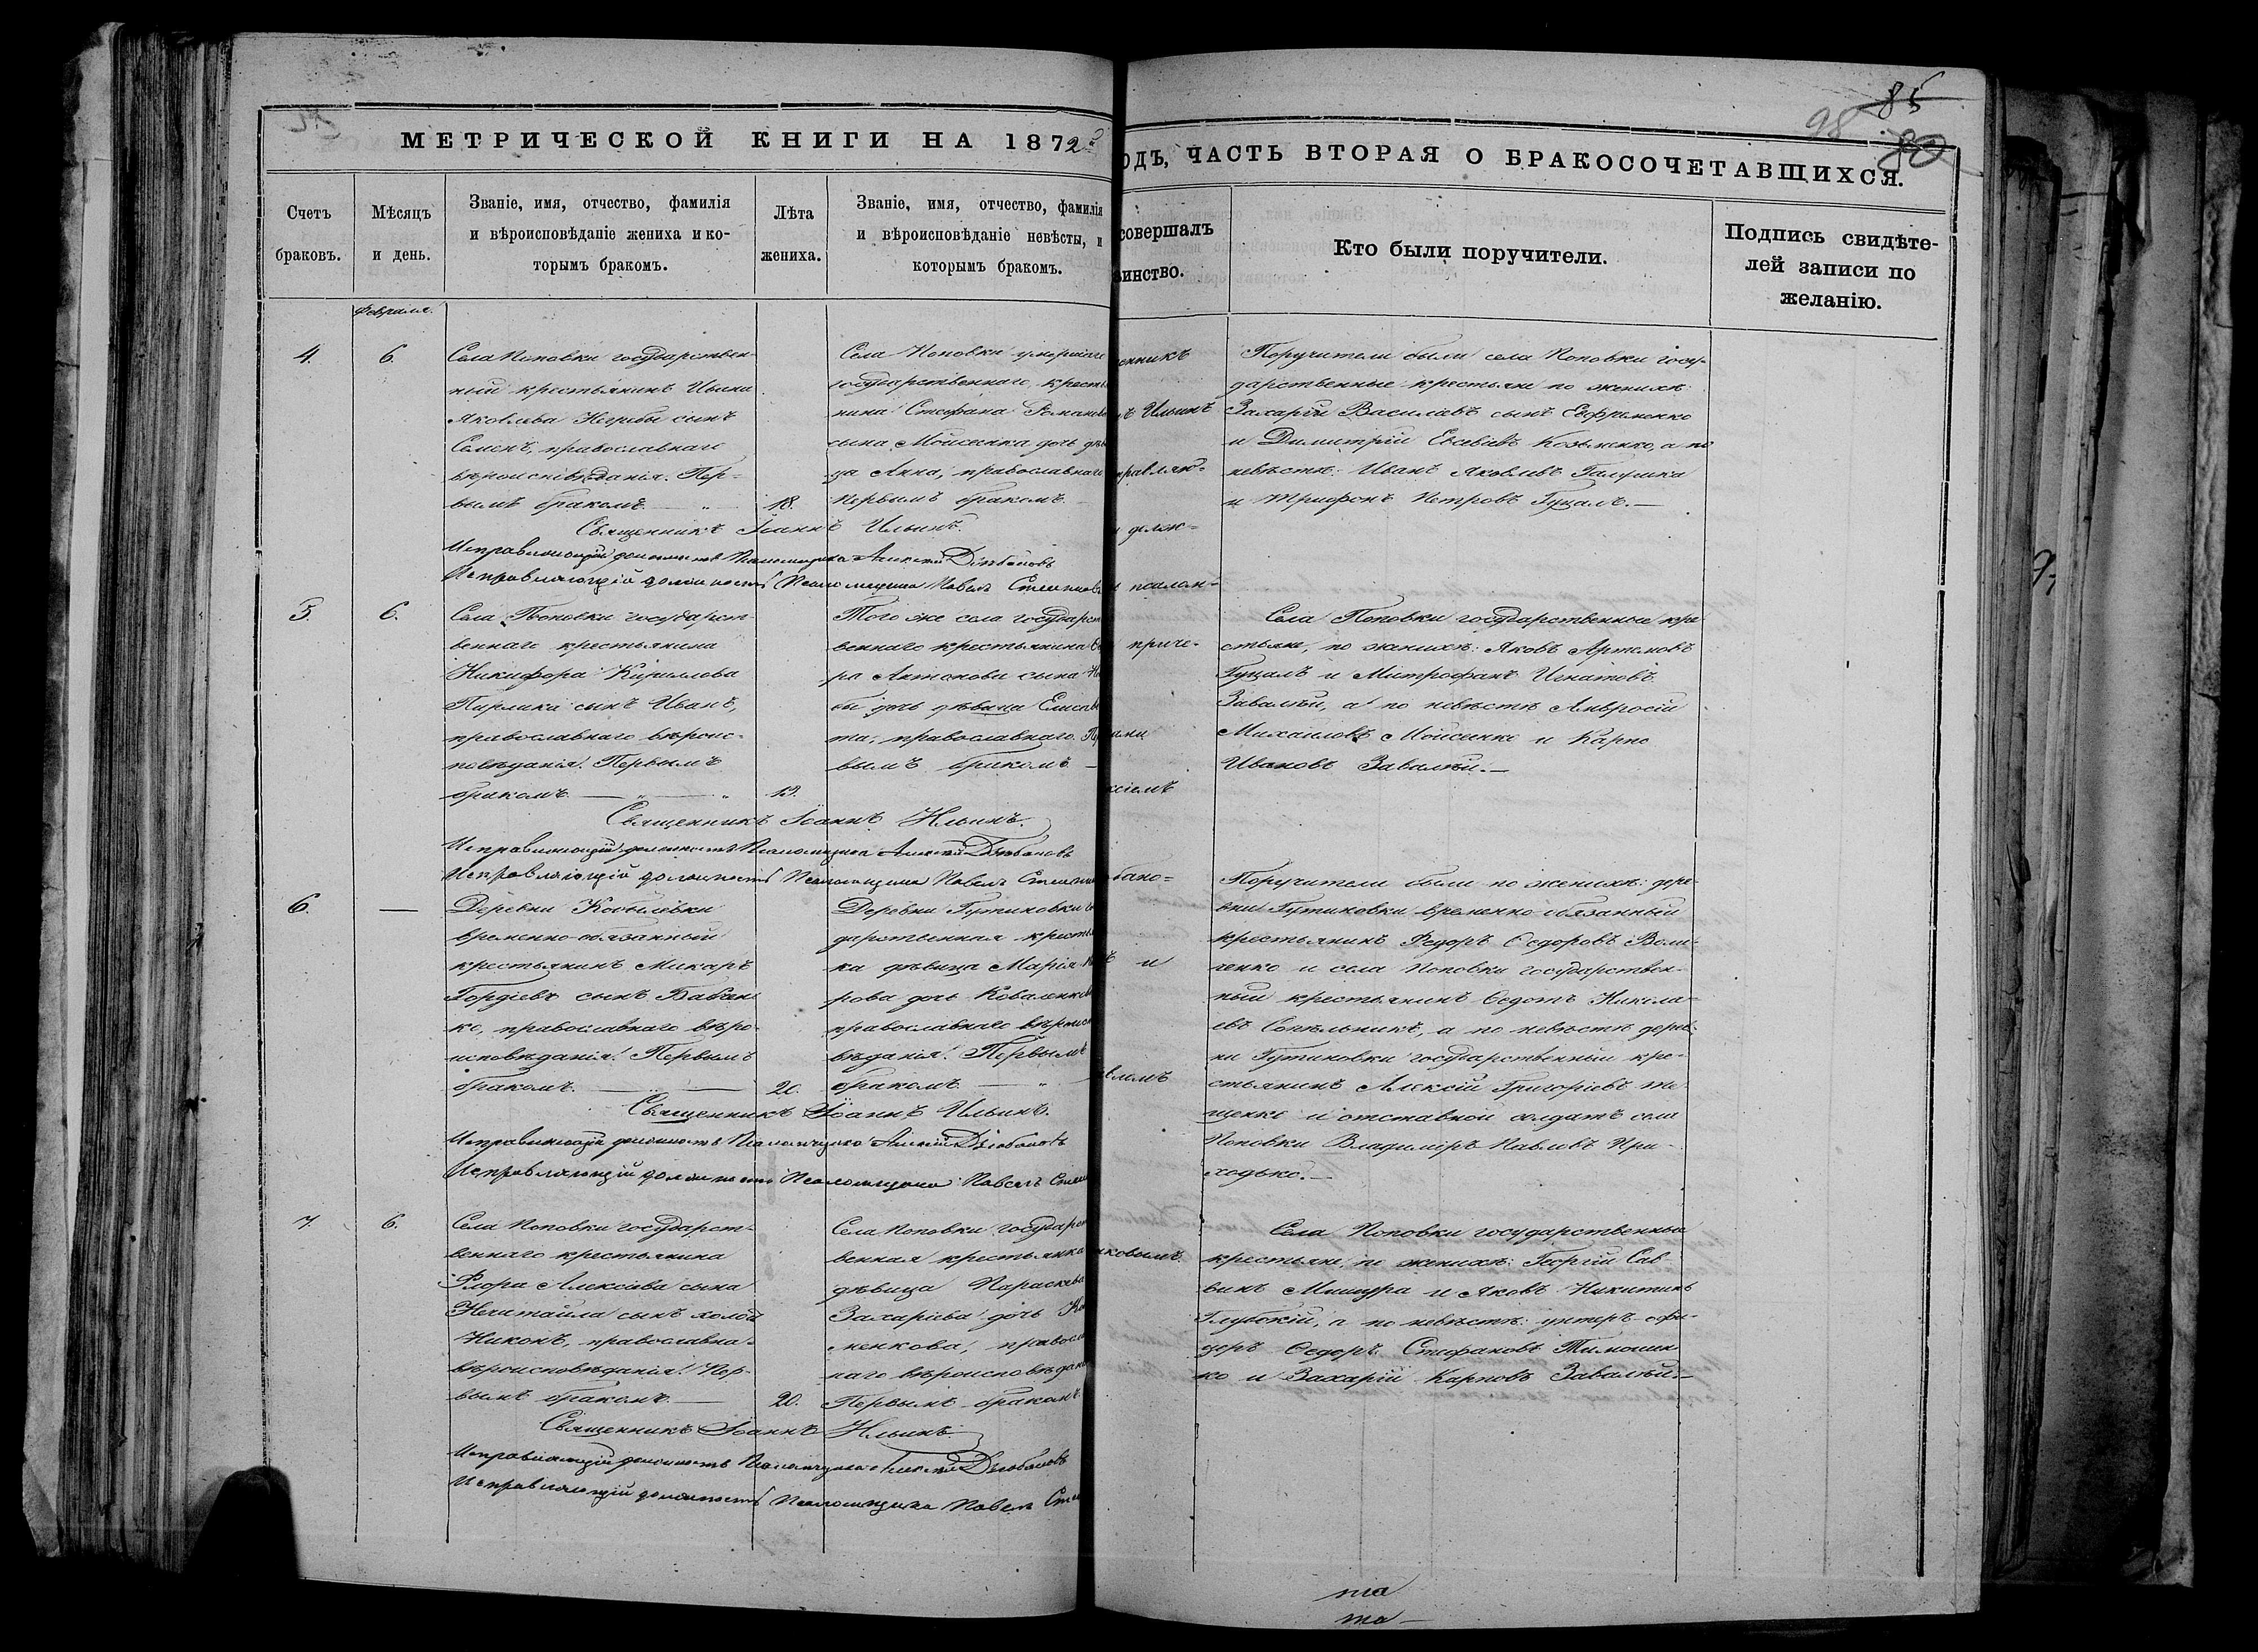 85
98
80
МЕТРИЧЕСКОЙ КНИГИ НА 1872
ОДЪ, ЧАСТЬ ВТОРАЯ О БРАКОСОЧЕТАВШИХСЯ.
Счетъ
браковъ.
Мѣсяцъ
и день.
Званіе, имя, отчество, фамилія
и вѣроисповѣданіе жениха и ко-
торымъ бракомъ.
Лѣта
жениха.
Званіе, имя, отчество, фамилія
и вѣроисповѣданіе невѣсты, и
которымъ бракомъ.
совершалъ
инство.
Кто были поручители.
Подпись свидѣте-
лей записи по
желанію.
Февраля.
4.
6.
Села Поповки государствен-
ный крестьянинъ Ивана
Яковлева сынъ
Семенъ, православнаго
вѣроисповѣданія. Пер-
вымъ бракомъ
18.
Села Поповки умершаго
государственнаго кресть
нина Стефана Романова
сына Моисеенка дочь дѣв
ца Анна, православнаго
первымъ бракомъ
енникъ
Ильинъ
правляю-
долж-
псалом-
Поручители были села Поповки госу-
дарственные крестьяне по женихѣ:
Захарій Васильевъ сынъ Ефременко
и Димитрій Евсеевъ Козьменко, а по
невѣстѣ: Иванъ Яковлевъ Галушка
и Трифонъ Петровъ Гуцалъ.—
Священникъ Іоаннъ Ильинъ.
Исправляющій должность Псаломщика Алексій
Исправляющій должность Псаломщика Павелъ
5.
6.
Села Поповки государст-
веннаго крестьянина
Никифора Кирилова
сынъ Иванъ,
православнаго вѣроис-
повѣданія. Первымъ
бракомъ.
19.
Того же села государст
веннаго крестьянина
ра Антонова сына
бы дочь дѣвица Елисаве
та, православнаго. Пер
вымъ бракомъ
приче-
Села Поповки государственные кре
стьяне, по женихѣ: Яковъ Артемовъ
Гуцалъ и Митрофанъ Игнатовъ
Завалѣй, а по невѣстѣ Амвросій
Михаиловъ Моисеенко и Карпъ
Ивановъ Завалѣй.—
Священникъ Іоаннъ Ильинъ.
Исправляющій должность Псаломщика Алексій
Исправляющій должность Псаломщика Павелъ
6.
—
Деревни Кобылевки
временно-обязанный
крестьянинъ Макаръ
Гордіевъ сынъ Бабен
ко, православнаго вѣро-
исповѣданія. Первымъ
бракомъ.
20.
Деревни Гутиновки го
дарственная крестьян
ка дѣвица Марія
рова дочь Коваленкова
православнаго вѣроиспо
вѣданія. Первымъ
бракомъ
Поручители были по женихѣ: дере-
вни Гутиновки временно обязанный
крестьянинъ Федоръ Ѳедоровъ Вели-
ченко и села Поповки государствен-
ный крестьянинъ Ѳедотъ Никола-
евъ, а по невѣстѣ дерев-
ни Гутиновки государственный кре-
стьянинъ Алексій Григоріевъ
щенко и отставной солдатъ села
Поповки Владиміръ Павловъ При-
ходько.—
Священникъ Іоаннъ Ильинъ.
Исправляющій должность Псаломщика Алексій
Исправляющій должность Псаломщика Павелъ
7.
6.
Села Поповки государст-
веннаго крестьянина
Флора Алексѣева сына
Нечитайла сынъ холост
Никонъ, православна-
вѣроисповѣданія. Пер-
вымъ бракомъ.
20.
Села Поповки государст
венная крестьянка
дѣвица Параскева
Захаріева дочь
менкова, правосла
наго вѣроисповѣдан
Первымъ бракомъ
Села Поповки государственные
крестьяне, по женихѣ: Георгій Сав-
винъ Мишура и Яковъ Никитинъ
Глубокій, а по невѣстѣ: унтеръ-офи-
церъ Ѳедоръ Стефановъ Тимошен-
ко и Захарій Карповъ Завалѣй.—
Священникъ Іоаннъ Ильинъ.
Исправляющій должность Псаломщика Алексій
Исправляющій должность Псаломщика Павелъ
та
та—